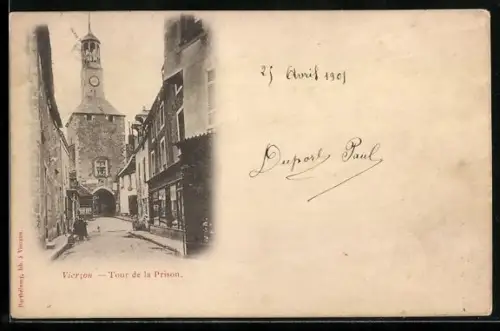 25 Avril 1901
Duport Paul
Vierzon. — Tour de la Prison.